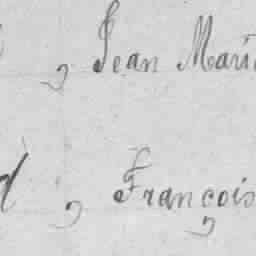 , Jean Marie
d , François